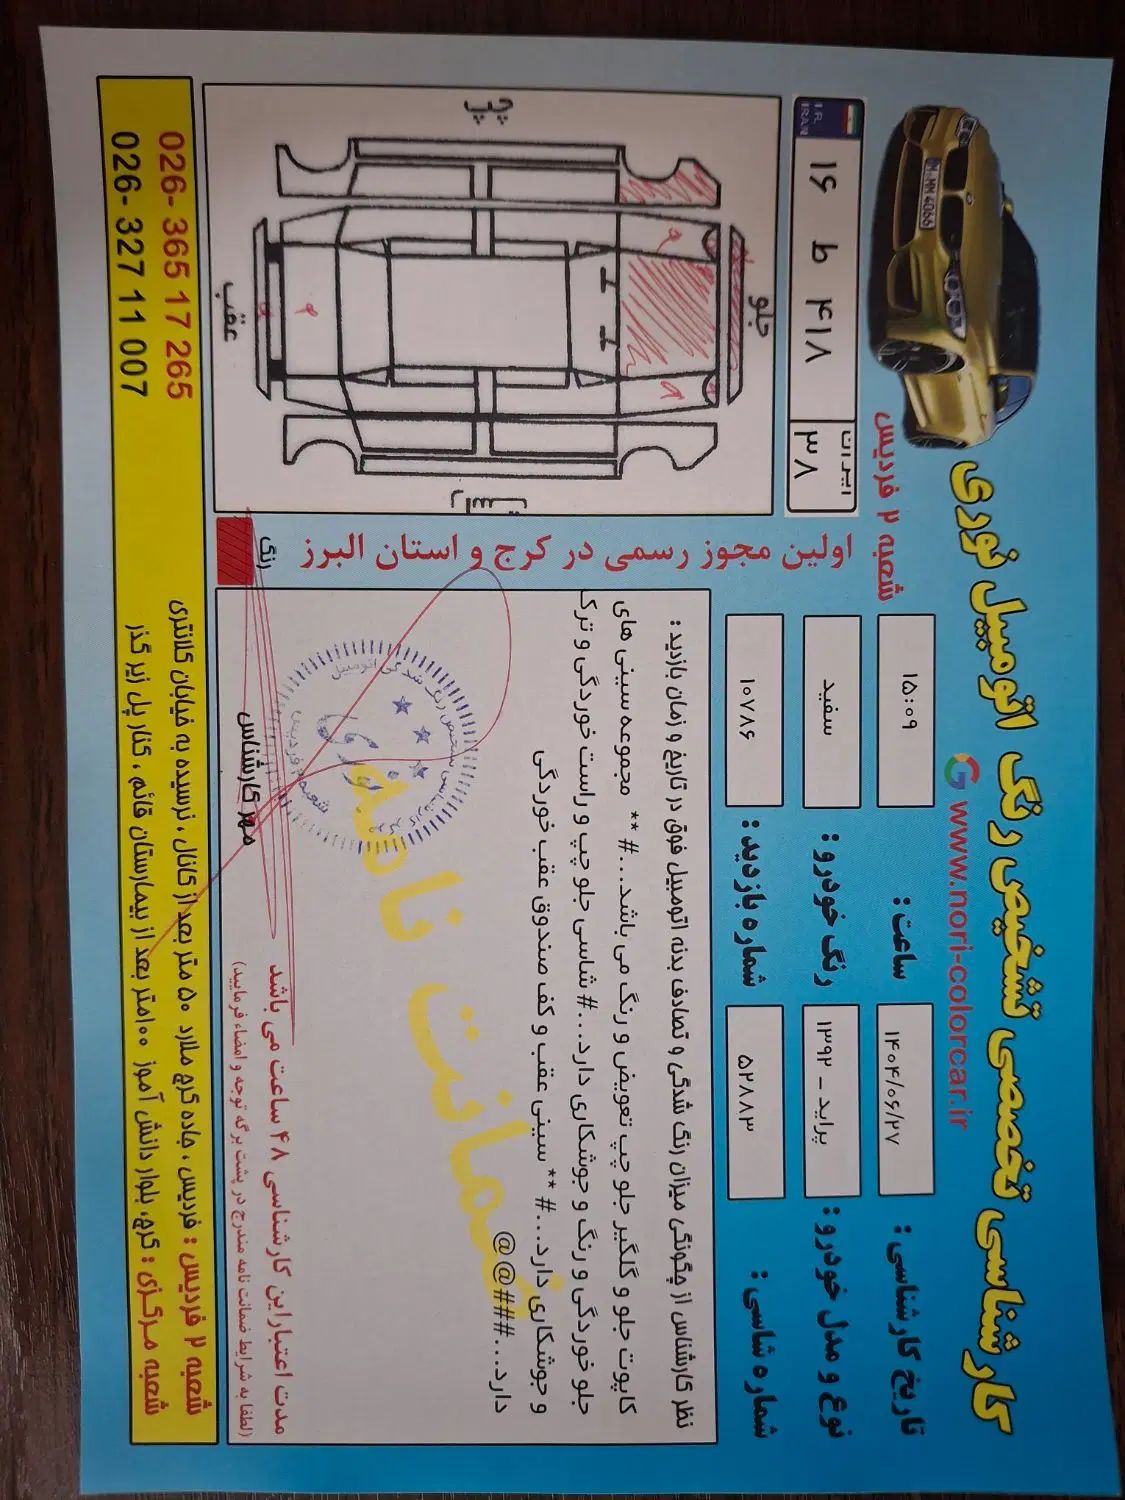 کارشناسی تخصصی تشخیص رنگ اتومبیل نوری
www.nori-colorcar.ir
شعبه ۲ فردیس
M:MM 4066
تاریخ کارشناسی : ۱۴۰۴/۰۶/۲۷
ساعت : ۱۵:۰۹
نوع و مدل خودرو : پراید – ۱۳۹۲
رنگ خودرو : سفید
شماره شاسی : ۵۲۸۸۳
شماره بازدید : ۱۰۷۸۶
I.R. IRAN
۱۶ ط ۴۱۸
ایران ۳۸
اولین مجوز رسمی در کرج و استان البرز
نظر کارشناس از چگونگی میزان رنگ شدگی و تصادف بدنه اتومبیل فوق در تاریخ و زمان بازدید :
کاپوت جلو و گلگیر جلو چپ تعویض و رنگ می باشد...# ** مجموعه سینی های
جلو خوردگی و رنگ و جوشکاری دارد...# شاسی جلو چپ و راست خوردگی و ترک
و جوشکاری دارد...# ** سینی عقب و کف صندوق عقب خوردگی
دارد...###@@
ضمانت نامه
جلو
عقب
چپ
راست
رنگ
مرکز کارشناسی تشخیص رنگ شدگی اتومبیل
نوری
شعبه ۲ فردیس
مهر کارشناس
مدت اعتبار این کارشناسی ۴۸ ساعت می باشد
(لطفا به شرایط ضمانت نامه مندرج در پشت برگه توجه و امضاء فرمایید)
شعبه ۲ فردیس : فردیس ، جاده کرج ملارد ۵۰ متر بعد از کانال ، نرسیده به خیابان کلانتری
026- 365 17 265
شعبه مرکزی : کرج، بلوار دانش آموز ۱۰۰متر بعد از بیمارستان قائم ، کنار پل زیر گذر
026- 327 11 007